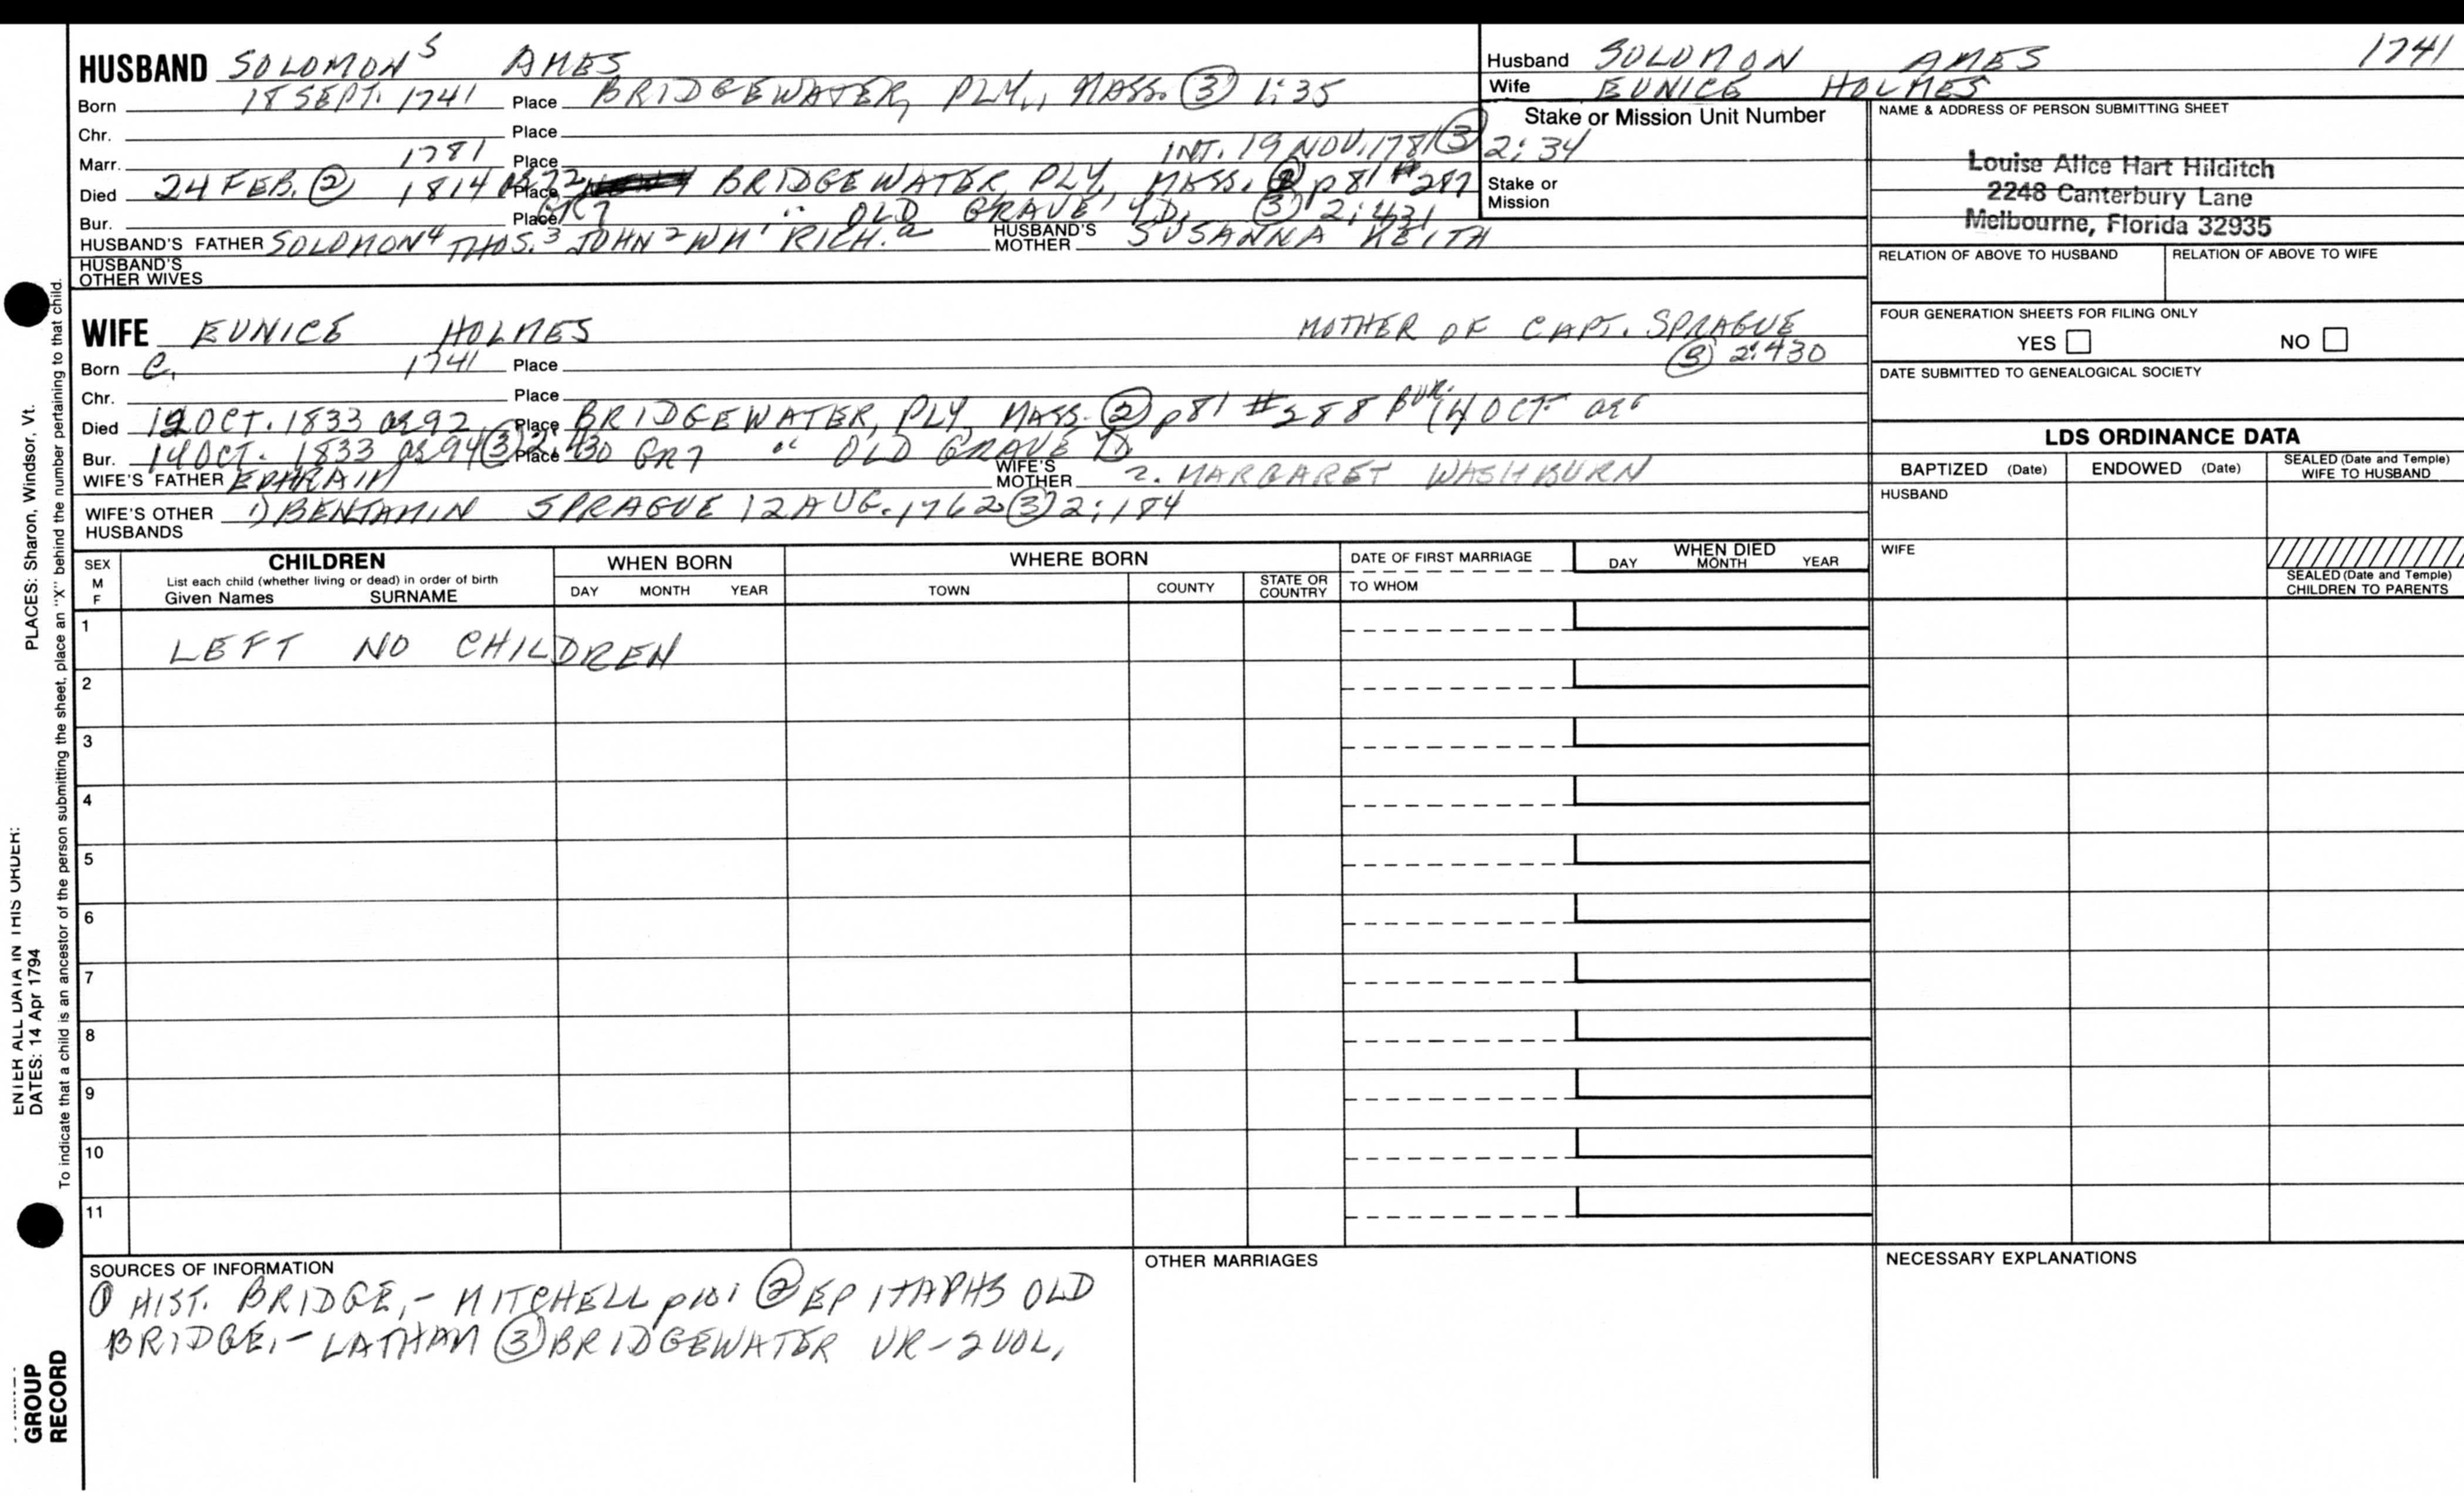 HUSBAND SOLOMON 5 AMES
Born 18 SEPT. 1741 Place BRIDGEWATER, PLY., MASS. (3) 1:35
Chr. Place
Marr. 1781 Place INT. 19 NOV. 1781 (3) 2:34
Died 24 FEB. (2) 1814 Place BRIDGEWATER, PLY. MASS. p 81 # 287
Bur. Place GR7 " OLD GRAVE YD. (3) 2:431
HUSBAND'S FATHER SOLOMON 4 THOS. 3 JOHN 2 WM 1 RICH. a HUSBAND'S MOTHER SUSANNA KEITH
HUSBAND'S OTHER WIVES
Husband SOLOMON AMES 1741
Wife EUNICE HOLMES
Stake or Mission Unit Number
Stake or Mission
NAME & ADDRESS OF PERSON SUBMITTING SHEET
Louise Alice Hart Hilditch
2248 Canterbury Lane
Melbourne, Florida 32935
RELATION OF ABOVE TO HUSBAND RELATION OF ABOVE TO WIFE
FOUR GENERATION SHEETS FOR FILING ONLY
YES NO
DATE SUBMITTED TO GENEALOGICAL SOCIETY
WIFE EUNICE HOLMES MOTHER OF CAPT. SPRAGUE
(3) 2:430
Born C. 1741 Place
Chr. Place
Died OCT. 1833 ae 92 Place BRIDGEWATER, PLY, MASS. (2) p81 #288 BUR. 14 OCT
Bur. 14 OCT. 1833 ae 94 (3) 2:430 Place GR7 " OLD GRAVE YD.
WIFE'S FATHER EPHRAIM WIFE'S MOTHER 2. MARGARET WASHBURN
WIFE'S OTHER HUSBANDS 1) BENJAMIN SPRAGUE 12 AUG. 1762 (3) 2:184
LDS ORDINANCE DATA
BAPTIZED (Date) ENDOWED (Date) SEALED (Date and Temple) WIFE TO HUSBAND
HUSBAND
WIFE
SEALED (Date and Temple) CHILDREN TO PARENTS
SEX M F
CHILDREN
List each child (whether living or dead) in order of birth
Given Names SURNAME
WHEN BORN
DAY MONTH YEAR
WHERE BORN
TOWN COUNTY STATE OR COUNTRY
DATE OF FIRST MARRIAGE
TO WHOM
WHEN DIED
DAY MONTH YEAR
1 LEFT NO CHILDREN
2
3
4
5
6
7
8
9
10
11
SOURCES OF INFORMATION
(1) HIST. BRIDGE,- MITCHELL p101 (2) EPITAPHS OLD
BRIDGE,- LATHAM (3) BRIDGEWATER VR-2 VOL,
OTHER MARRIAGES
NECESSARY EXPLANATIONS
PLACES: Sharon, Windsor, Vt.
ENTER ALL DATA IN THIS ORDER:
DATES: 14 Apr 1794
To indicate that a child is an ancestor of the person submitting the sheet, place an "X" behind the number pertaining to that child.
GROUP
RECORD